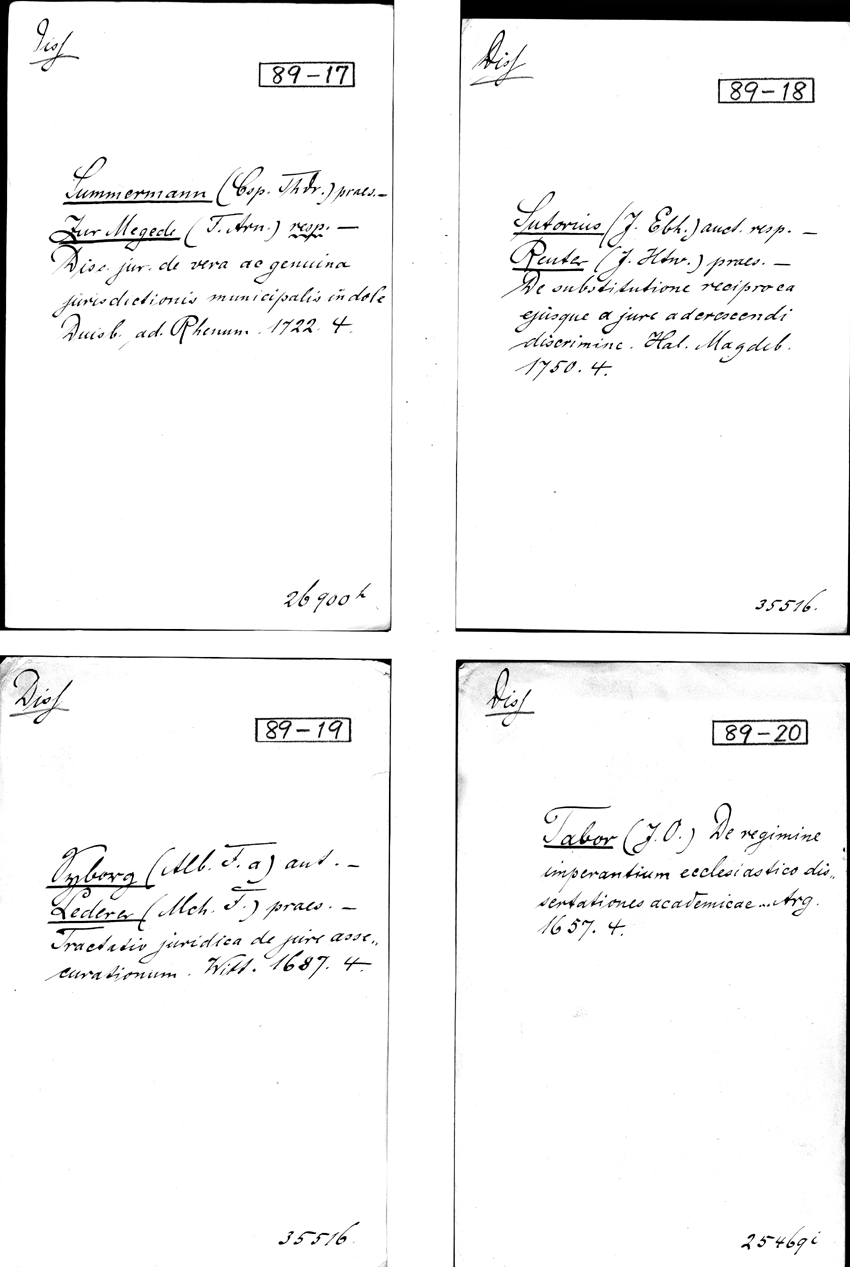 Diss
89-17
Summermann (Csp. Thdr.) praes.—
Zur Megede (T. Arn.) resp. —
Diss. jur. de vera ac genuina
jurisdictionis municipalis indole
Duisb. ad. Rhenum. 1722. 4.
26900h
Diss
89-18
Sutorius (J. Ebh.) auct. resp. —
Reuter (J. Htw.) praes. —
De substitutione reciproca
ejusque a jure adcrescendi
discrimine. Hal. Magdeb.
1750. 4.
35516.
Diss
89-19
Syborg (Alb. F. a) aut. —
Lederer (Mch. F.) praes. —
Tractatio juridica de jure asse„
curationum. Witt. 1687. 4.
35516
Diss
89-20
Tabor (J. O.) De regimine
imperantium ecclesiastico dis„
sertationes academicae... Arg.
1657. 4.
25469i